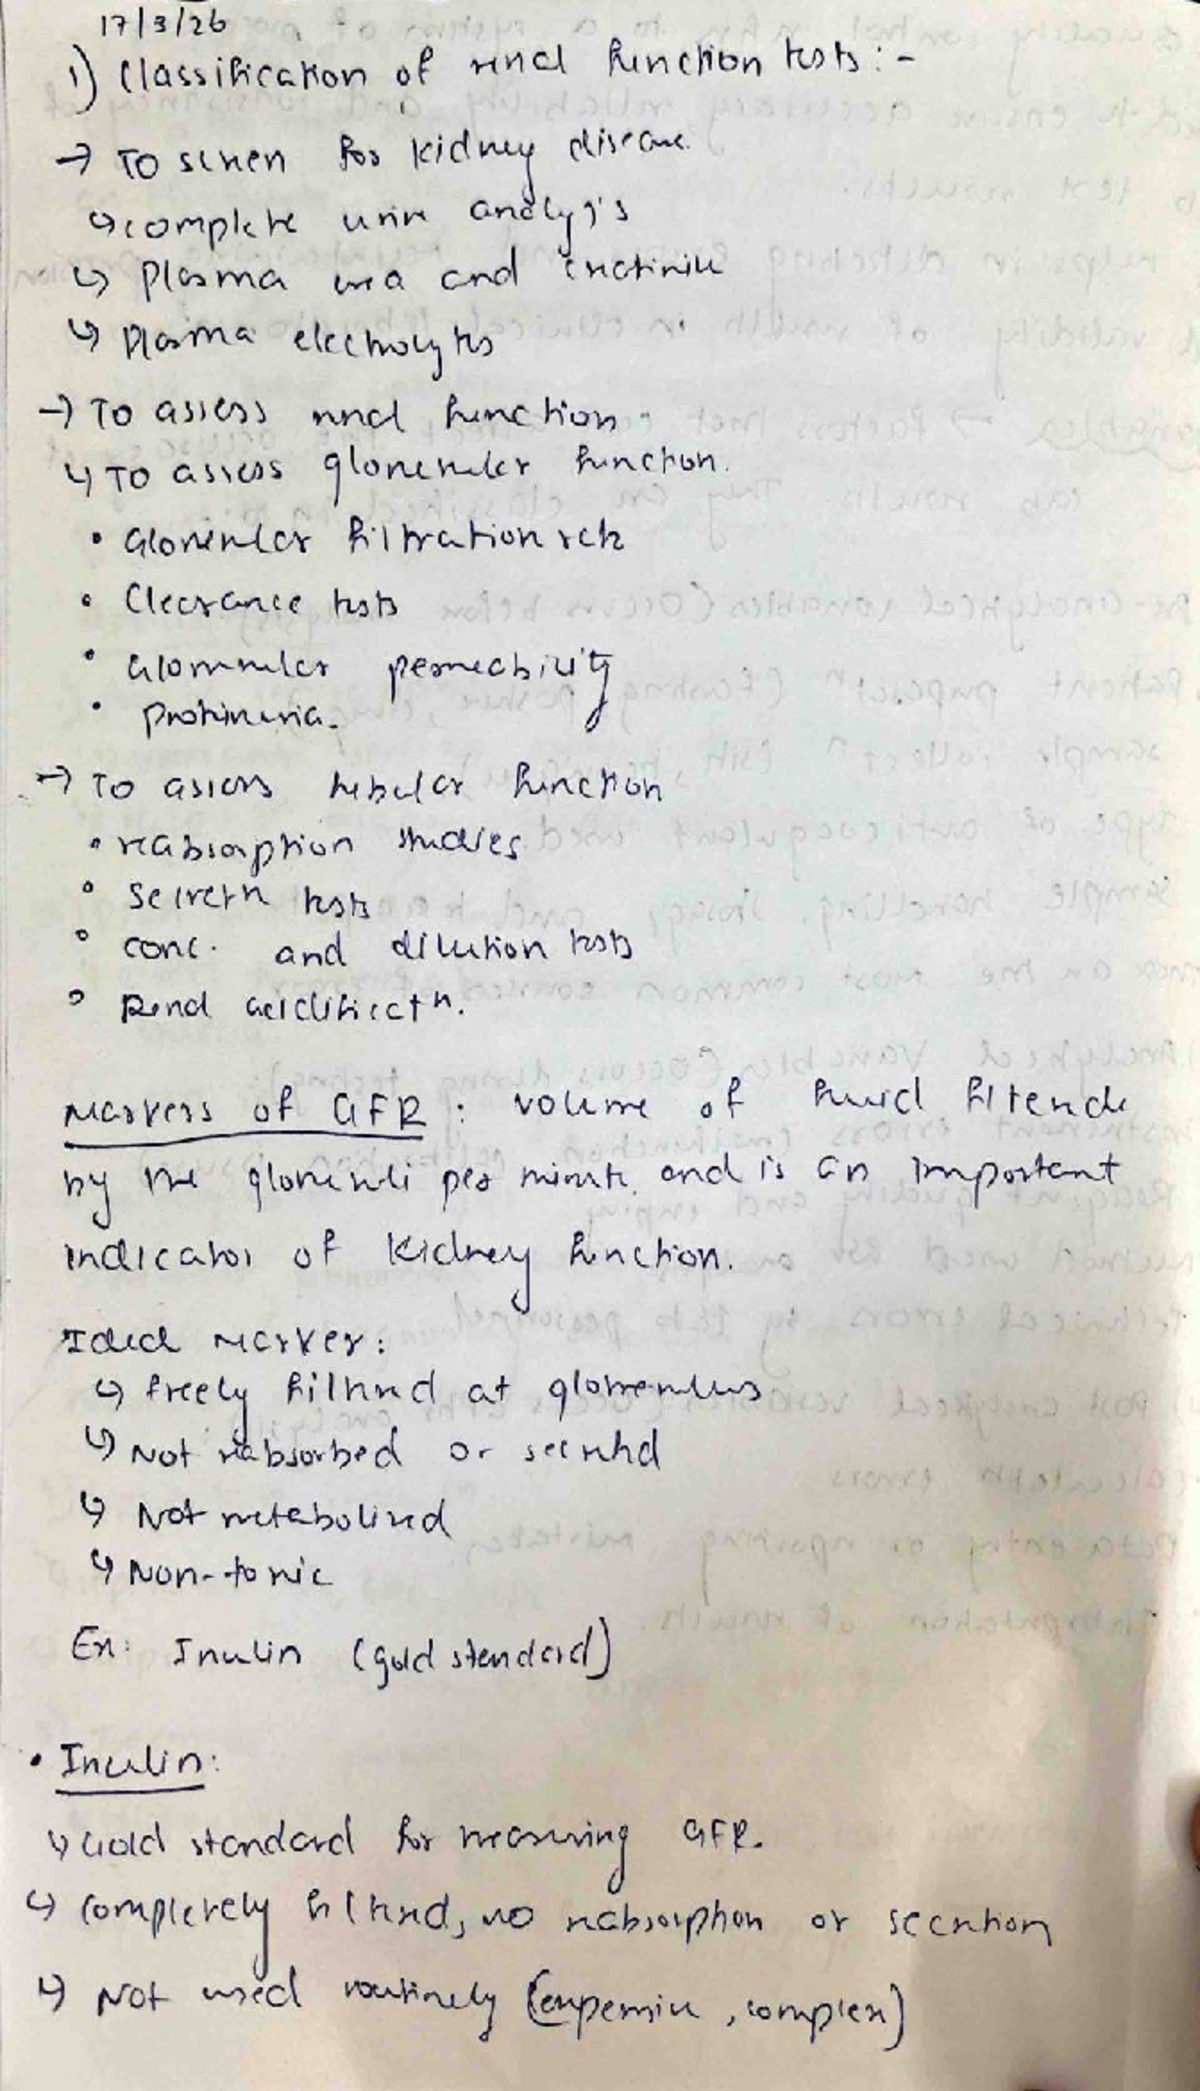 17/3/26
1) Classification of renal function tests :-
→ To screen for kidney disease.
↳ complete urine analysis
↳ Plasma urea and creatinine
↳ Plasma electrolytes
→ To assess renal function
↳ To assess glomerular function.
• Glomerular filtration rate
• Clearance tests
• Glomerular permeability
• Proteinuria.
→ To assess tubular function
• reabsorption studies
• Secretn tests
• conc. and dilution tests
• Renal acidificatn.
Markers of GFR : volume of fluid filtered
by the glomeruli per minute and is an important
indicator of kidney function.
Ideal marker :
↳ freely filtered at glomerulus
↳ Not reabsorbed or secreted
↳ Not metabolized
↳ Non-toxic
Ex: Inulin (gold standard)
• Inulin:
↳ Gold standard for measuring GFR.
↳ completely filtered, no reabsorption or secretion
↳ Not used routinely (expensive, complex)